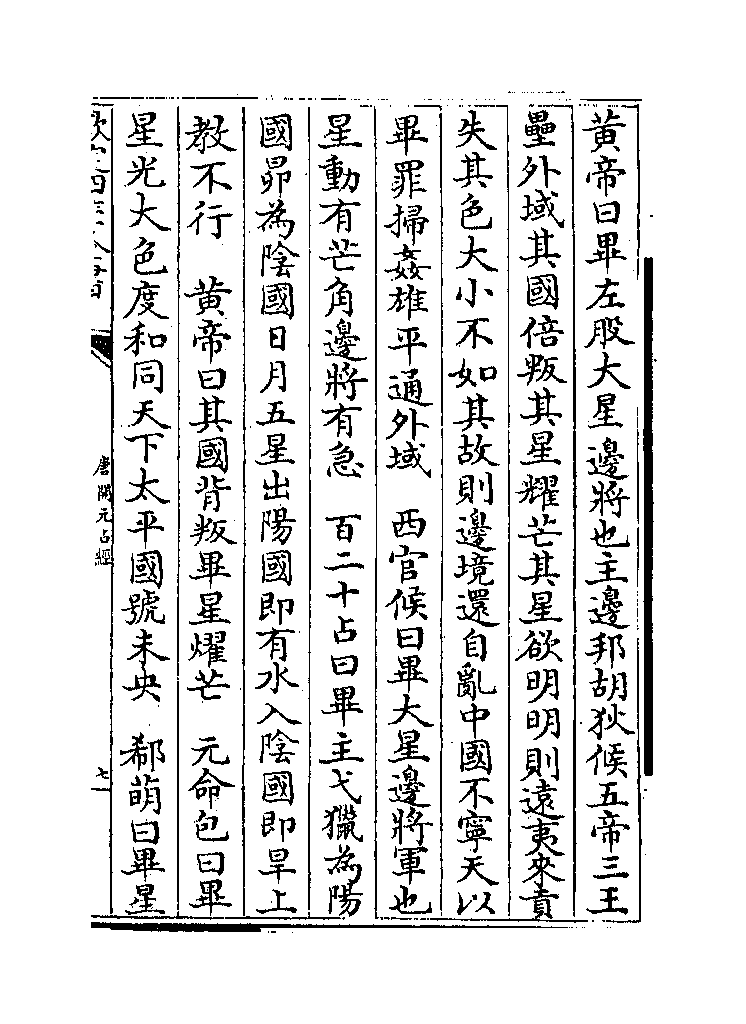 黄帝曰畢左股大星邊將也主邊邦胡狄候五帝三王
壘外域其國倍叛其星耀芒其星欲明明則遠夷來貢
失其色大小不如其故則邊境還自亂中國不寧天以
畢罪掃姦雄平通外域　西官候曰畢大星邊將軍也
星動有芒角邊將有急　百二十占曰畢主弋獵為陽
國昴為陰國日月五星出陽國即有水入陰國即旱上
教不行　黄帝曰其國背叛畢星燿芒　元命包曰畢
星光大色度和同天下太平國號未央　郗萌曰畢星
唐開元占經
七